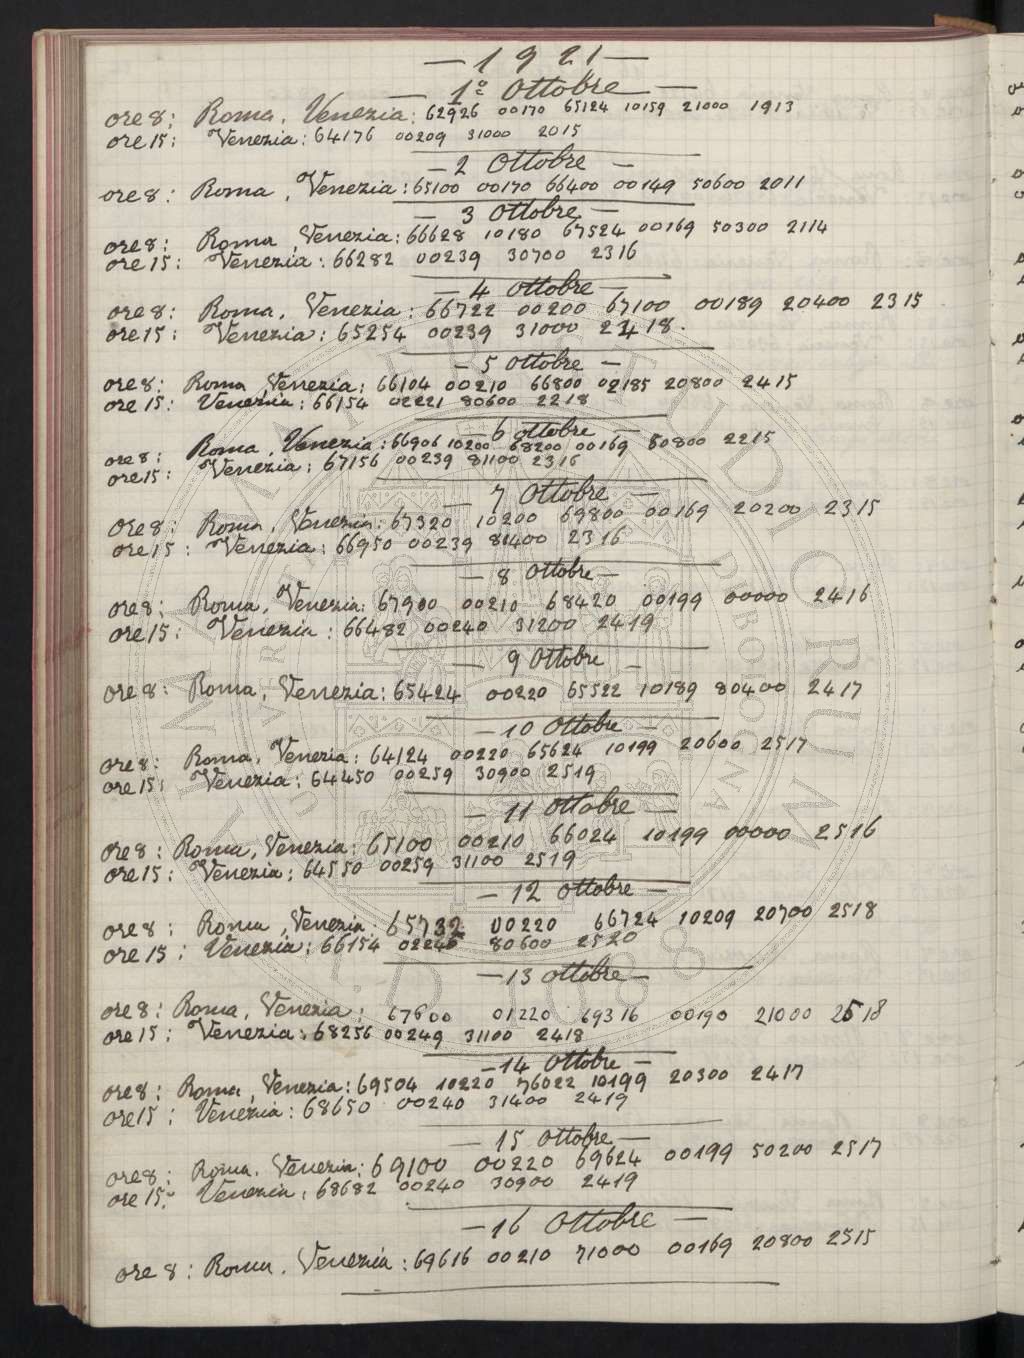 — 1921 —
— 1º Ottobre —
ore 8: Roma, Venezia: 62926 00170 65124 10159 21000 1913
ore 15: Venezia: 64176 00209 31000 2015
— 2 Ottobre —
ore 8: Roma, Venezia: 65100 00170 66400 00149 50600 2011
— 3 Ottobre —
ore 8: Roma, Venezia: 66628 10180 67524 00169 50300 2114
ore 15: Venezia: 66282 00239 30700 2316
— 4 Ottobre —
ore 8: Roma, Venezia: 66722 00200 67100 00189 20400 2315
ore 15: Venezia: 65254 00239 31000 2418.
— 5 Ottobre —
ore 8: Roma, Venezia: 66104 00210 66800 02185 20800 2415
ore 15: Venezia: 66154 02221 80600 2218
— 6 Ottobre —
ore 8: Roma, Venezia: 66906 10200 68200 00169 50800 2215
ore 15: Venezia: 67156 00239 81100 2316
— 7 Ottobre —
ore 8: Roma, Venezia: 67320 10200 69800 00169 20200 2315
ore 15: Venezia: 66950 00239 81400 2316
— 8 Ottobre —
ore 8: Roma, Venezia: 67900 00210 68420 00199 00000 2416
ore 15: Venezia: 66482 00240 31200 2419
— 9 Ottobre —
ore 8: Roma, Venezia: 65424 00220 65522 10189 80400 2417
— 10 Ottobre —
ore 8: Roma, Venezia: 64124 00220 65624 10199 20600 2517
ore 15: Venezia: 64450 00259 30900 2519
— 11 Ottobre —
ore 8: Roma, Venezia: 65100 00210 66024 10199 00000 2516
ore 15: Venezia: 64550 00259 31100 2519
— 12 Ottobre —
ore 8: Roma, Venezia: 65732 00220 66724 10209 20700 2518
ore 15: Venezia: 66154 02240 80600 2520
— 13 Ottobre —
ore 8: Roma, Venezia: 67600 01220 69316 00190 21000 2518
ore 15: Venezia: 68256 00249 31100 2418
— 14 Ottobre —
ore 8: Roma, Venezia: 69504 10220 76022 10199 20300 2417
ore 15: Venezia: 68650 00240 31400 2419
— 15 Ottobre —
ore 8: Roma, Venezia: 69100 00220 69624 00199 50200 2517
ore 15: Venezia: 68682 00240 30900 2419
— 16 Ottobre —
ore 8: Roma, Venezia: 69616 00210 71000 00169 20800 2515
ALMA MATER STUDIORUM
A.D. 1088